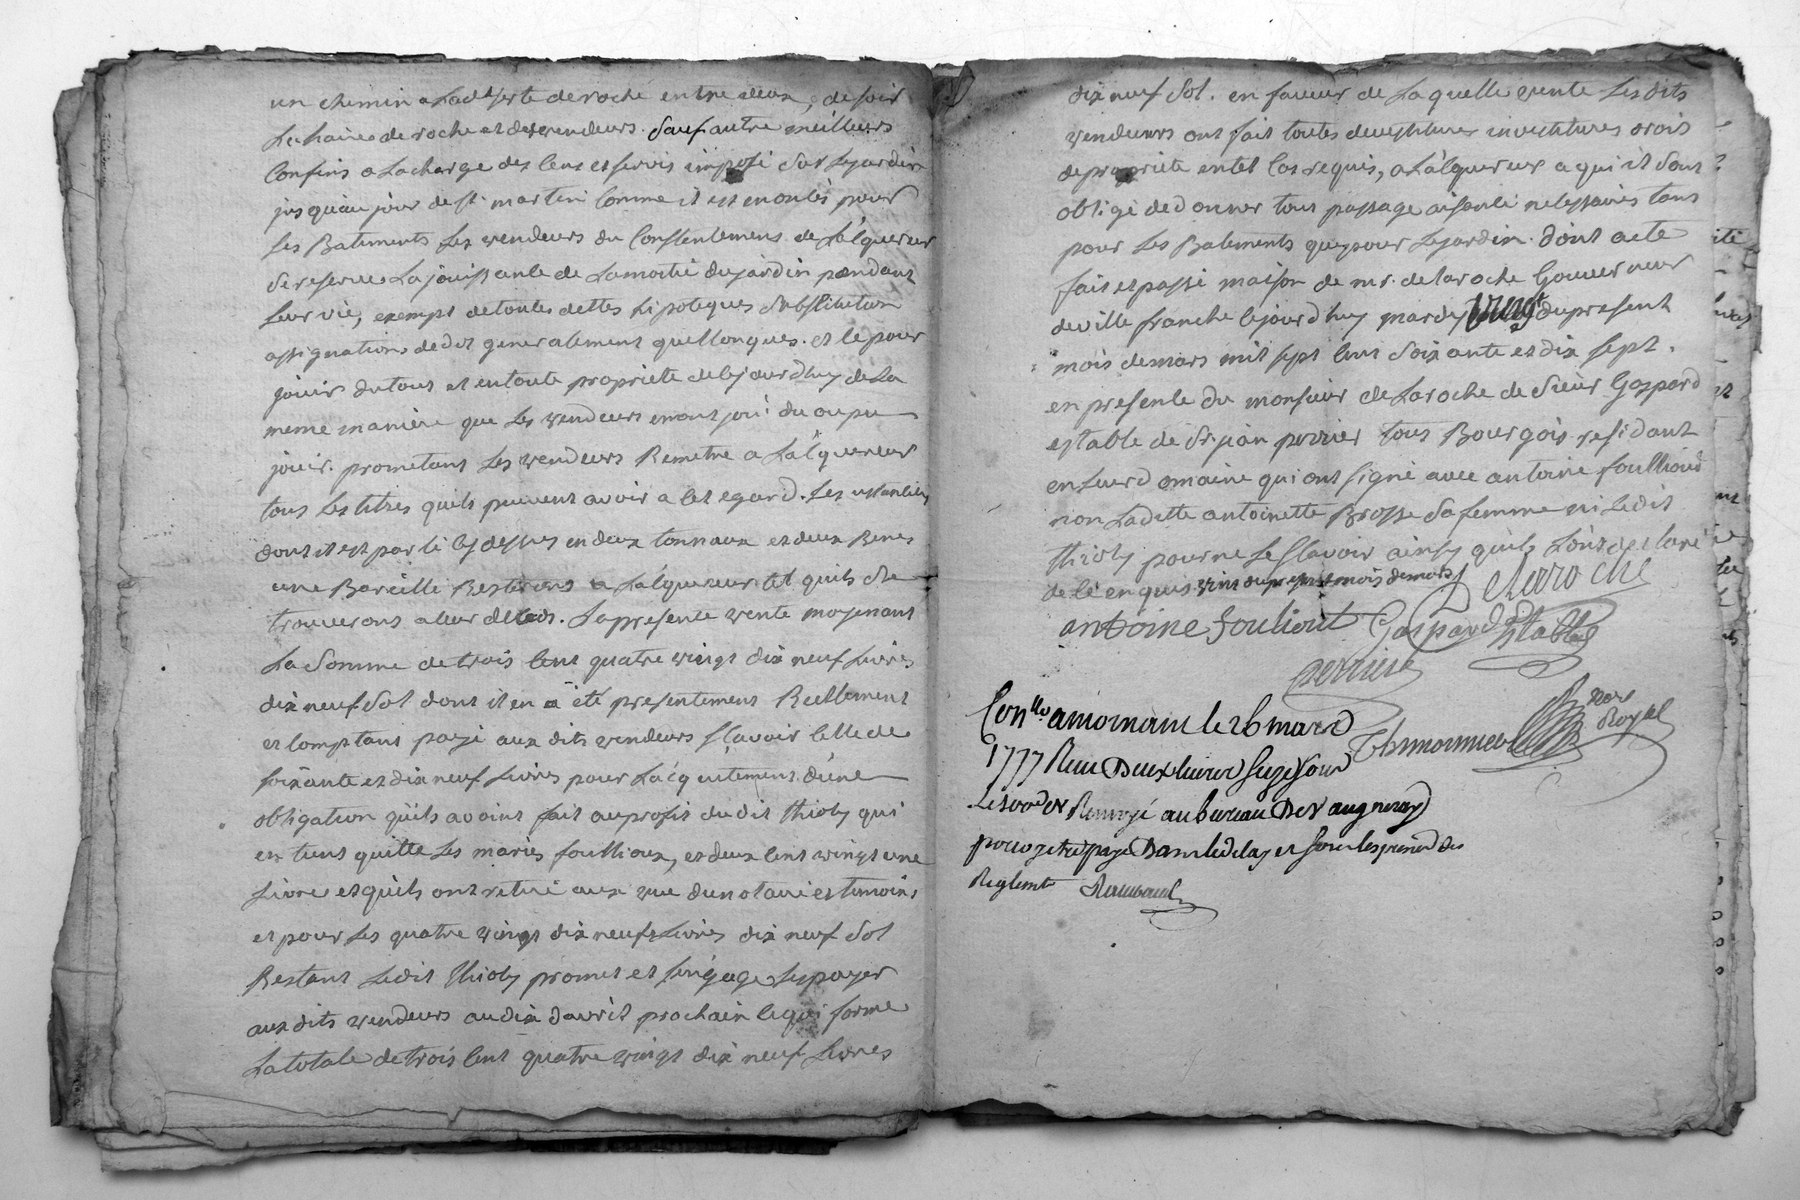 un chemin a Laditte de roche entre deux, de soir
La haine de roche et des vendeurs. Sauf autre meilleurs
Confins a La charge des Cens et servis imposé Sur Le jardin
jusqu'au jour de st. martin Comme il est enontés pour
Les Batiments Les vendeurs du Consentement de L'acquereur
Se reserve La jouissance de La moitié du jardin pendant
Leur vie, exempt de toutes dettes hipoteques Substitution
assignations dedit generalement quelConques. et Ce pour
jouir du tout et en toute propriete de Cejourd'huy de La
meme maniere que Les vendeurs en ont joui du ou pu
jouir. prometans Les vendeurs Remetre a L'acquereur
tous Les titres quils peuvent avoir a Cet egard. Les ustanciles
dont il est parlé Cy dessus en deux tonnaux et deux Benes
une Bareille Resterons a L'acquereur tel quils Se
trouverons a leur deces. La presente vente moyenant
La Somme de trois Cent quatre vingt dix neuf Livres
dix neuf Sol dont il en a été presentement Reellement
et Comptant payé aux dits vendeurs sCavoir Celle de
soixante et dix neuf Livres pour L'acquitement d'une
obligation qu'ils avoint fait au profit du dit thioly qui
en tient quitte Les mariés foullioux, et deux Cent vingt une
Livre et quils ont retiré aux vue du notaire et temoins
et pour Les quatre vingt dix neuf Livres dix neuf Sol
Restant Ledit thioly promet et s'engage Les payer
aux dits vendeurs au dix d'avril prochain Ce qui forme
La totale de trois Cent quatre vingt dix neuf Livres
dix neuf Sol. en faveur de Laquelle vente Les dits
vendeurs ont fait toutes devestitures investitures drois
de propriete en tel Cas requis, a L'acquereur a qui il Sont
obligé de donner tous passage aisance necessaires tant
pour Les Batiments que pour Le jardin. dont acte
fait et passé maison de mr. de laroche Gouverneur
de ville franche Cejourd'huy mardy du present
mois de mars mil sept Cent Soixante et dix sept.
en presence du monsieur de Laroche de Sieur Gaspard
estable de Sr. jean perrier tous Bourgois residant
en Leur domaine qui ont signé avec antoine foullioud
non Laditte antoinette Brosse Sa femme ni Ledit
thioly pour ne Le sCavoir ainsy quils L'ont declaré
de Ce enquis. vint du present mois de mars Delaroche
antoine fouliout Gaspard Estable
perrier
Conllé a mornant le 26 mars
1777 Reçu Deux livres
not Royal
Renvoyé au bureau De Vaugneray
pour y etre payé Dans le delay et sous les peines des
Reglemts